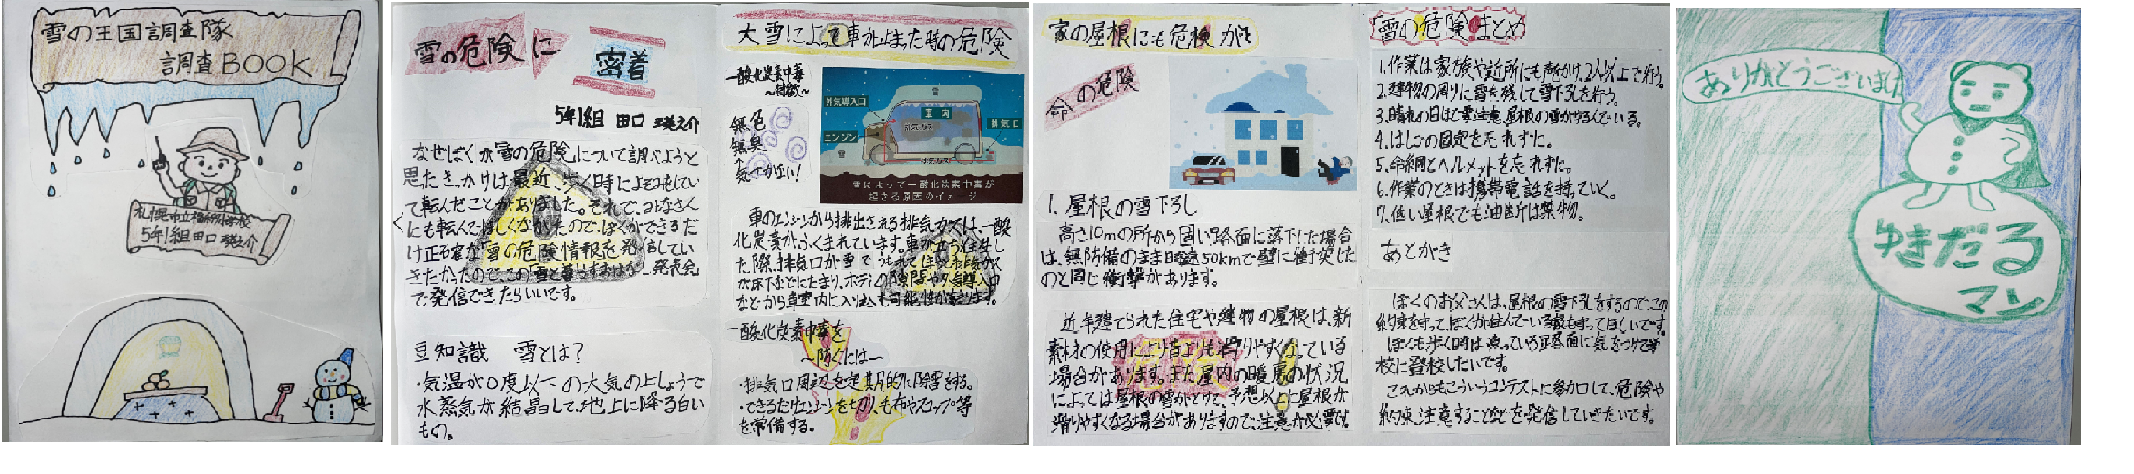 雪の王国調査隊
調査BOOK
札幌市立
5年1組 田口
雪の危険に
密着
5年1組 田口
なぜぼくが雪の危険について調べようと
思たきっかけは、最近、歩く時によそみをしてい
て転んだことがありました。それで、みなさん
にも転んでほしくなかったのでぼくができるだ
け正確な雪の危険情報を発信してい
きたかったのでこの「雪と暮らすおはなし」発表会
で発信できたらいいです。
豆知識 雪とは?
・気温が0度以下の大気の上しょうで
水蒸気が結晶して、地上に降る白い
もの。
大雪によって車が止まった時の危険
一酸化炭素中毒
無色
無臭
気づかない!
排気導入口
車内
排気口
エンジン
排気ガス
雪によって一酸化炭素中毒が
起きる原因のイメージ
車のエンジンから排出される排気ガスには、一酸
化炭素がふくまれています。車が立ち往生し
た際、排気口が雪で
などから車室内に入り込む可能性があります。
一酸化炭素中毒を
〜防ぐには〜
・排気口周辺を定期的に除雪する。
・できるだけエンジンを切り、毛布やスコップ等
を常備する。
家の屋根にも危険が
命の危険
1. 屋根の雪下ろし
高さ10mの所から固い路面に落下した場合
は、無防備のまま時速50kmで壁に衝突した
のと同じ衝撃があります。
近年建てられた住宅や建物の屋根は、新
素材の使用により雪も滑りやすくなっている
場合があります。また屋内の暖房の状況
によっては屋根の雪がとけて、予想以上に屋根が
滑りやすくなる場合がありますので、注意が必要です。
雪の危険まとめ
1.作業は家族や近所にも声かけ、2人以上で行う。
2.建物の周りに雪を残して雪下ろしを行う。
3.晴れの日ほど要注意、屋根の雪がゆるんでいる。
4.はしごの固定を忘れずに。
5.命綱とヘルメットを忘れずに。
6.作業のときは携帯電話を持っていく。
7.低い屋根でも油断は禁物。
あとがき
ぼくのおじいちゃんは、屋根の雪下ろしをするのでこの
約束を守って、ぼくが住んでいる家も守ってほしいです。
ぼくも歩く時は、凍っている路面に気をつけて学
校に登校したいです。
これからもこういうコンテストに参加して、危険や
約束、注意することなどを発信していきたいです。
ありがとうございました
ゆきだる
マン